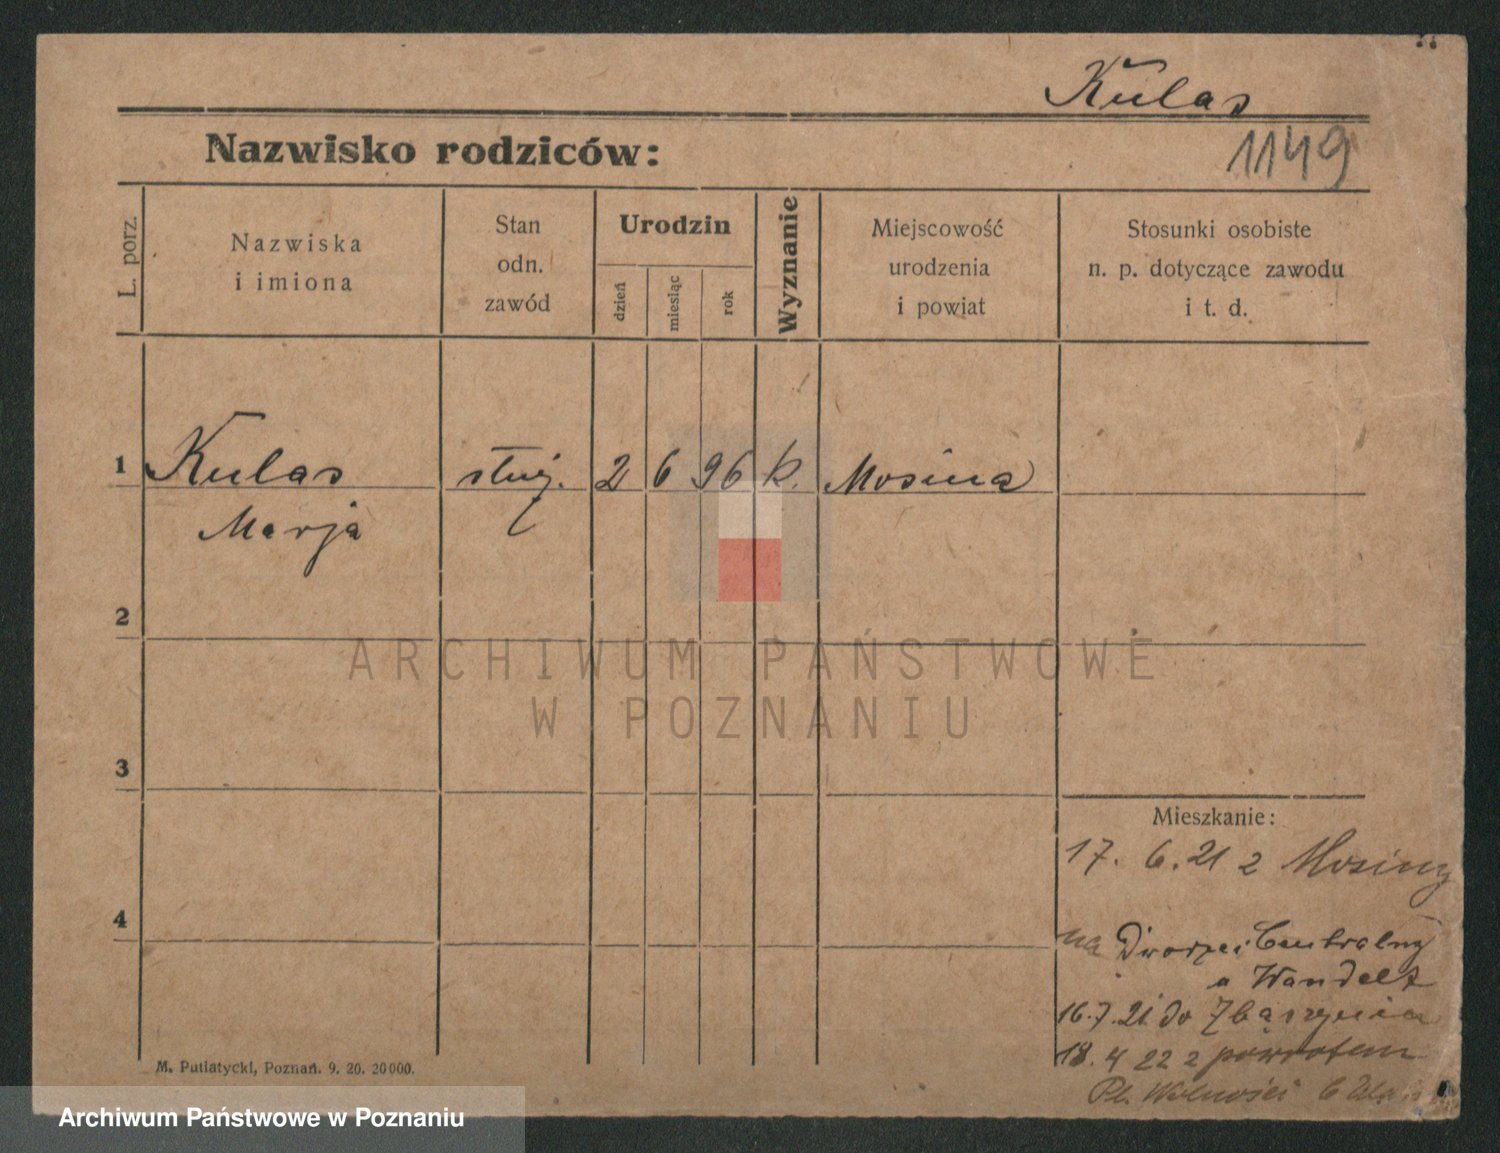 Kulas
1149
Nazwisko rodziców:
L. porz.
Nazwiska
i imiona
Stan
odn.
zawód
Urodzin
dzień
miesiąc
rok
Wyznanie
Miejscowość
urodzenia
i powiat
Stosunki osobiste
n. p. dotyczące zawodu
i t. d.
1
Kulas
służ.
2
6
96
k.
Mosina
Marja
2
ARCHIWUM PAŃSTWOWE
W POZNANIU
3
Mieszkanie:
17. 6. 21 z Mosiny
4
na Dworzec Centralny
u Wandelt
16. 7. 21. do Zbąszynia
18. 4 22 z powrotem
Pl. Wolności 6
M. Putiatycki, Poznań. 9. 20. 20000.
Archiwum Państwowe w Poznaniu